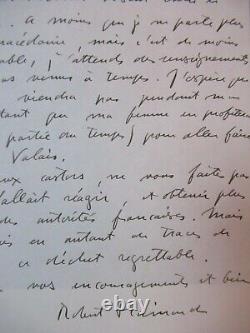 à moins que je ne parle plus
macédoine, mais c'est de moins
able, j'attends des renseignements
as venus à temps. J'espère que
viendra pas pendant
tant que ma femme en profitera
partie du temps) pour aller faire
Valais.
aux castors, ne vous faites pas
fallait réagir, et obtenir plus
des autorités françaises. Mais
is en autant de traces de
ce déchet regrettable.
vos encouragements et bien
Robert